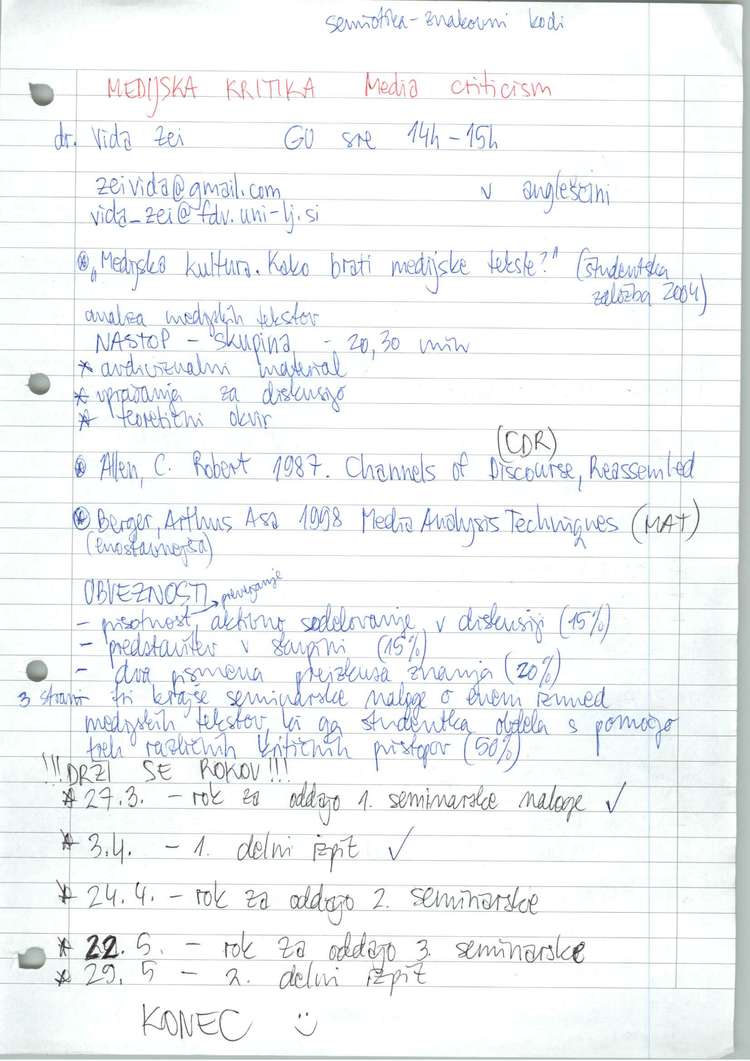 semiotika-znakovni kodi
MEDIJSKA KRITIKA Media criticism
dr. Vida Zei GU sre 14h-15h
zeivida@gmail.com v angleščini
vida_zei@fdv.uni-lj.si
* "Medijska kultura. Kako brati medijske tekste?" (študentska
založba 2004)
analiza medijskih tekstov
NASTOP - skupina - 20,30 min
* avdiovizualni material
* vprašanja za diskusijo
* teoretični okvir
(CDR)
* Allen, C. Robert 1987. Channels of Discourse, Reassembled
* Berger, Arthus Asa 1998 Media Analysis Techniques (MAT)
(enostavnejša)
OBVEZNOSTI preverjanje
- prisotnost, aktivno sodelovanje v diskusiji (15%)
- predstavitev v skupini (15%)
- dva pismena preizkusa znanja (20%)
3 strani tri krajše seminarske naloge o enem izmed
medijskih tekstov ki ga študentka obdela s pomočjo
treh različnih kritičnih pristopov (50%)
!!! DRŽI SE ROKOV!!!
* 27.3. - rok za oddajo 1. seminarske naloge ✓
* 3.4. - 1. delni izpit ✓
* 24.4. - rok za oddajo 2. seminarske
* 22.5. - rok za oddajo 3. seminarske
* 29.5 - 2. delni izpit
KONEC :)